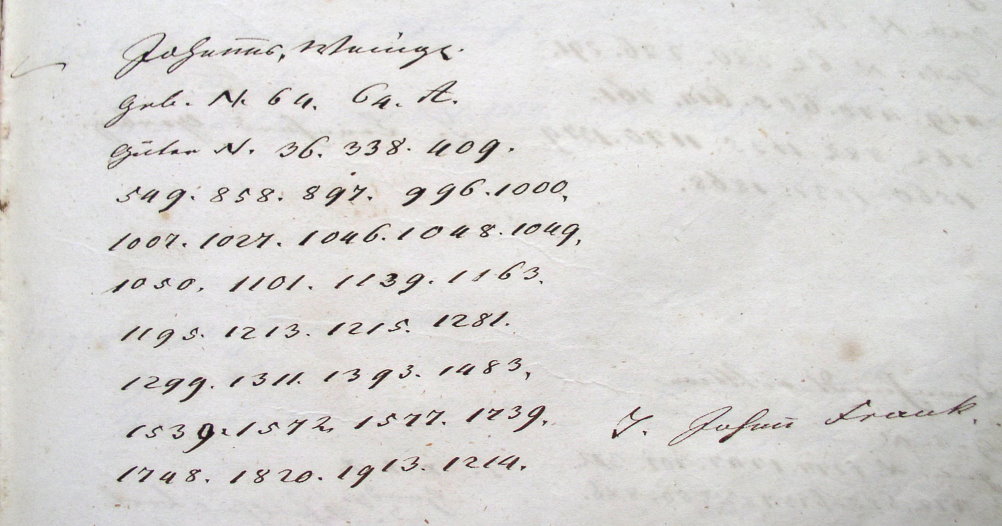 Johannes, Weingz.
Geb. N. 64. 64. A.
Güter N. 36. 338. 409.
549. 858. 897. 996. 1000,
1007. 1027. 1046. 1048. 1049,
1050. 1101. 1139. 1163.
1195. 1213. 1215. 1281.
1299. 1311. 1393. 1483,
1539. 1572. 1577. 1739,
1748. 1820. 1913. 1214.
J. Johan̄ Frank.